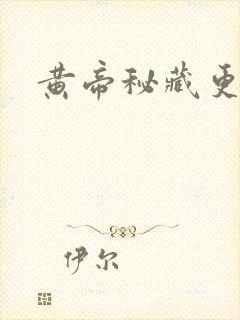 黄帝秘藏更
伊尔